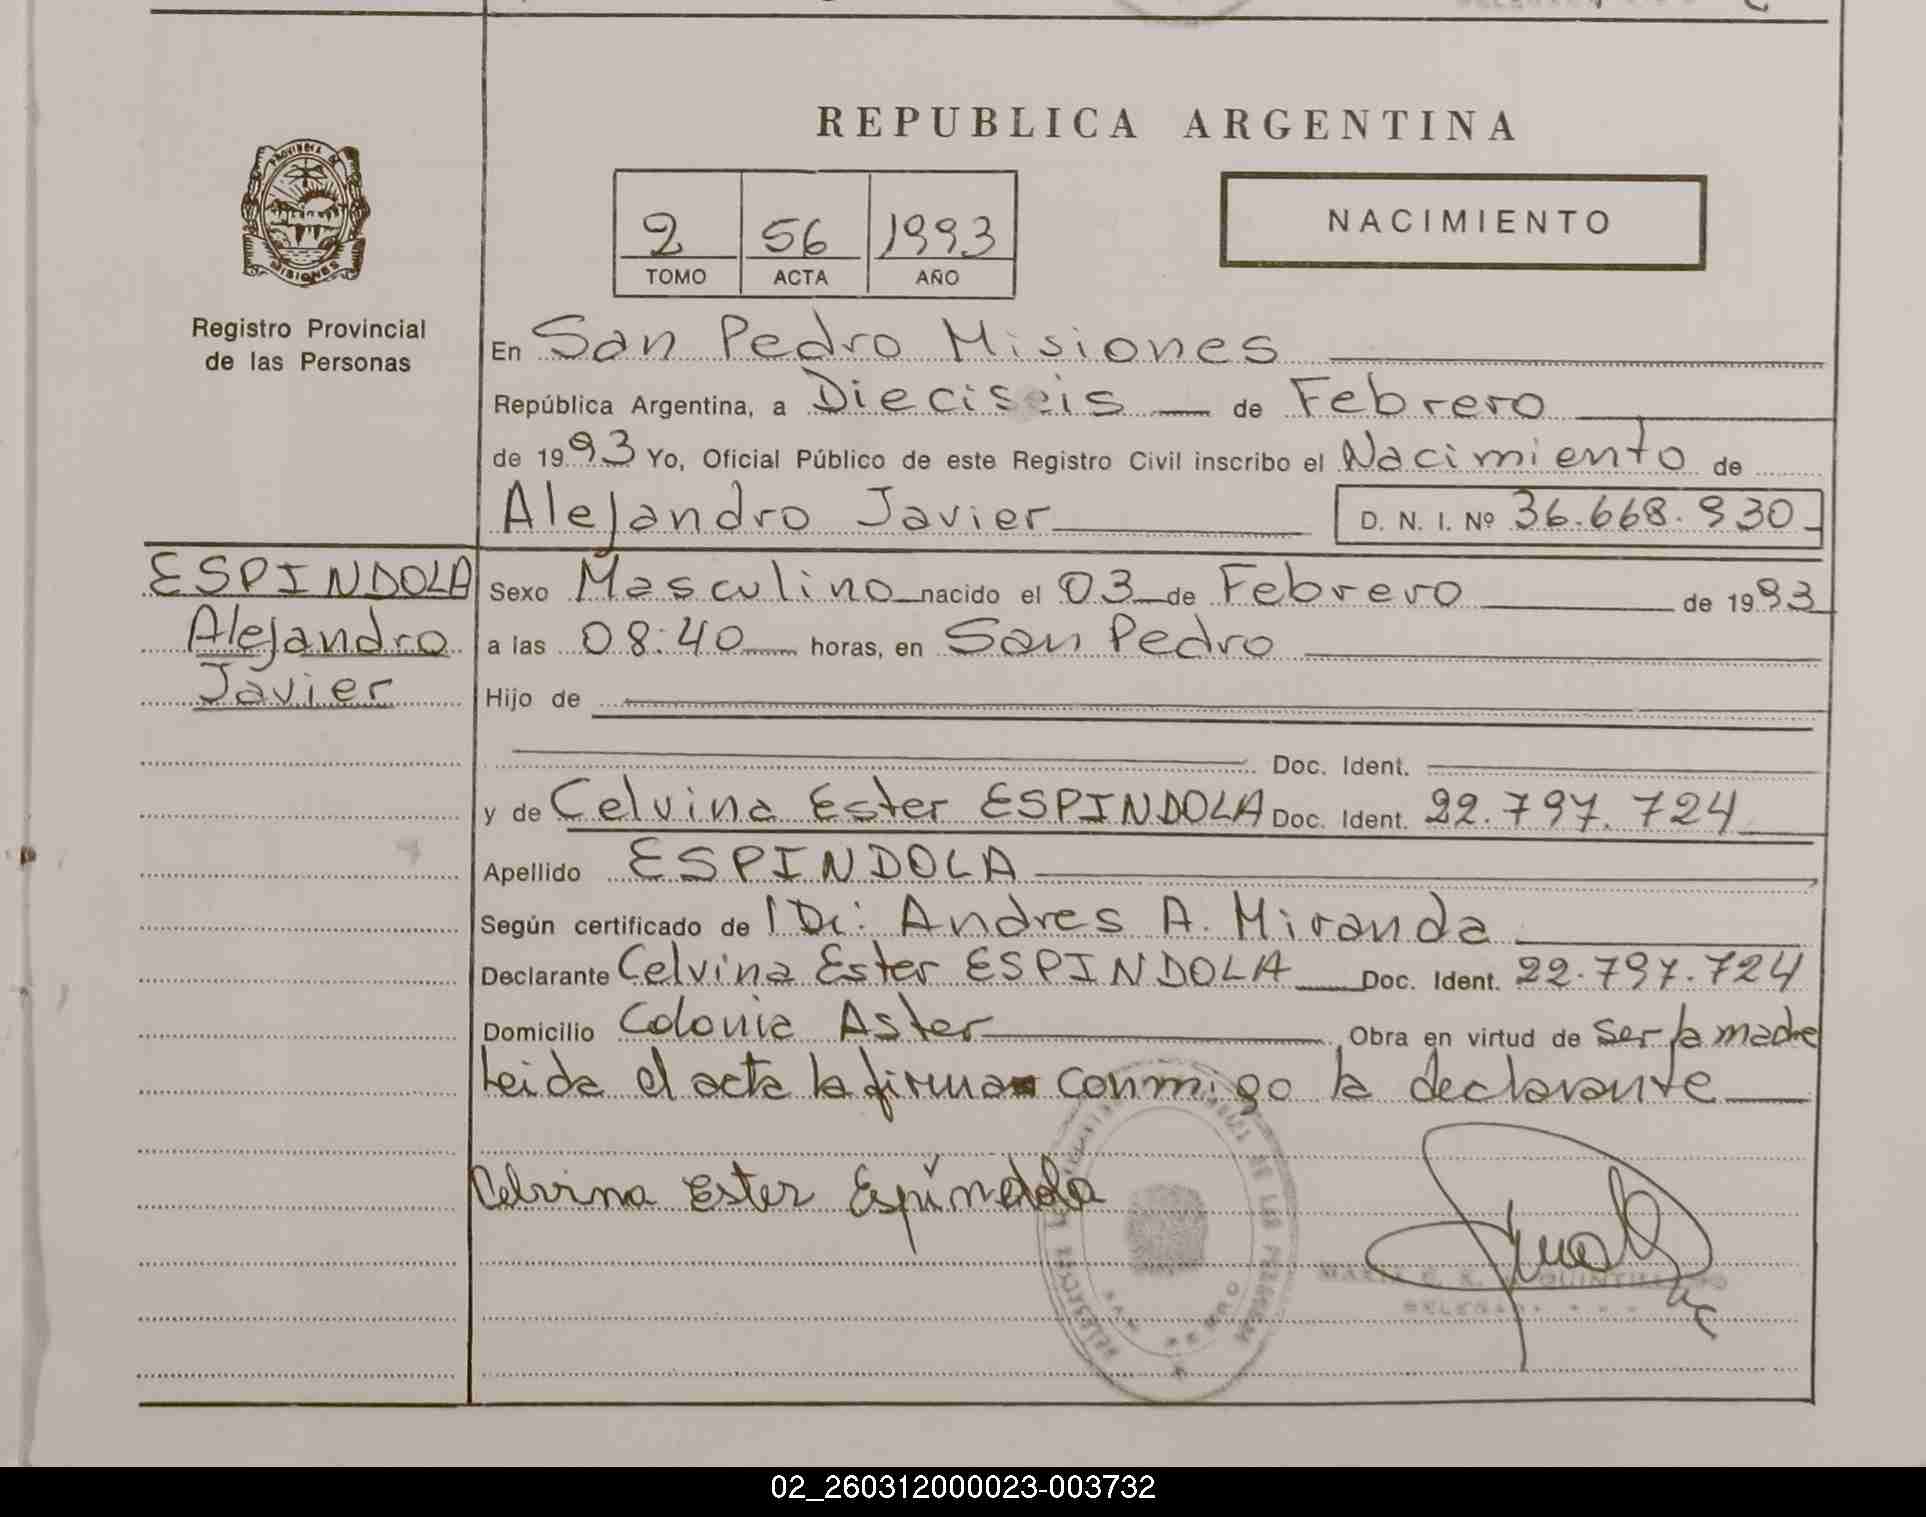 REPUBLICA ARGENTINA
PROVINCIA DE
MISIONES
Registro Provincial
de las Personas
2 56 1993
TOMO ACTA AÑO
NACIMIENTO
En San Pedro Misiones
República Argentina, a Dieciseis de Febrero
de 1993 Yo, Oficial Público de este Registro Civil inscribo el Nacimiento de
Alejandro Javier D. N. I. Nº 36.668.930
ESPINDOLA
Alejandro
Javier
Sexo Masculino nacido el 03 de Febrero de 1993
a las 08:40 horas, en San Pedro
Hijo de
Doc. Ident.
y de Celvina Ester ESPINDOLA Doc. Ident. 22.797.724
Apellido ESPINDOLA
Según certificado de Andres A. Miranda
Declarante Celvina Ester ESPINDOLA Doc. Ident. 22.797.724
Domicilio Colonia Aster Obra en virtud de ser la madre
Leida el acta la firma conmigo la declarante
Celvina Ester Espíndola
DE LAS PERSONAS
SAN PEDRO
02_260312000023-003732